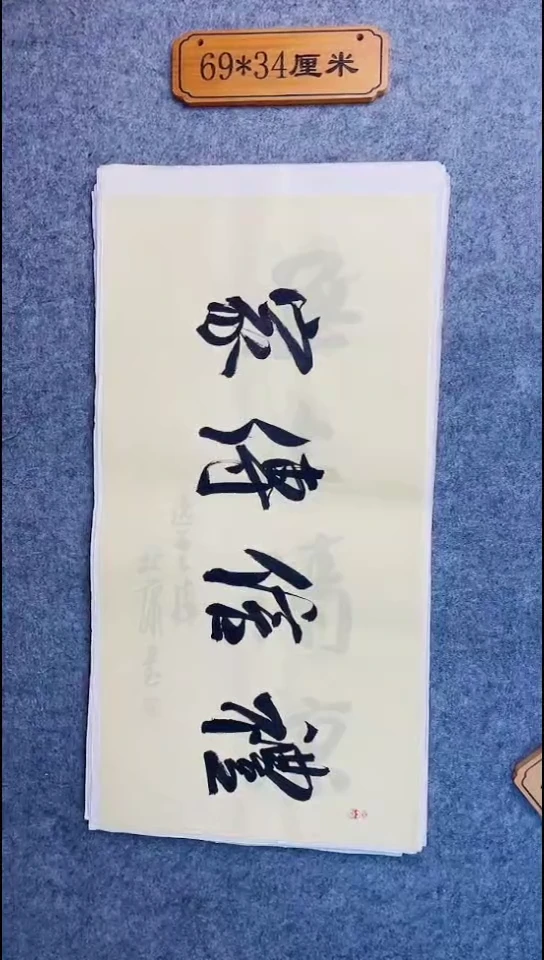 69*34厘米
禮信傳家